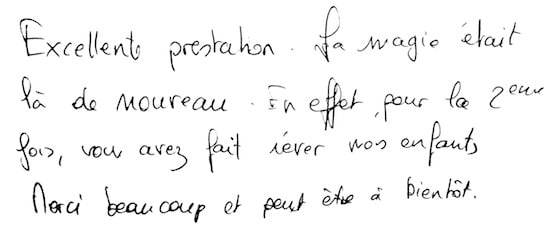 Excellente prestation. La magie était
là de nouveau. En effet, pour la 2eme
fois, vous avez fait rêver nos enfants
Merci beaucoup et peut être à bientôt.